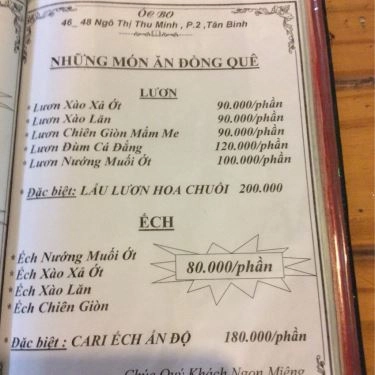 ỐC BỢ
46_ 48 Ngô Thị Thu Minh , P.2 ,Tân Bình
NHỮNG MÓN ĂN ĐỒNG QUÊ
LƯƠN
* Lươn Xào Xả Ớt 90.000/phần
* Lươn Xào Lăn 90.000/phần
* Lươn Chiên Giòn Mắm Me 90.000/phần
* Lươn Đùm Cá Đắng 120.000/phần
* Lươn Nướng Muối Ớt 100.000/phần
* Đặc biệt: LẨU LƯƠN HOA CHUỐI 200.000
ẾCH
* Ếch Nướng Muối Ớt
* Ếch Xào Xả Ớt
* Ếch Xào Lăn
* Ếch Chiên Giòn
80.000/phần
* Đặc biệt : CARI ẾCH ẤN ĐỘ 180.000/phần
Chúc Quý Khách Ngon Miệng